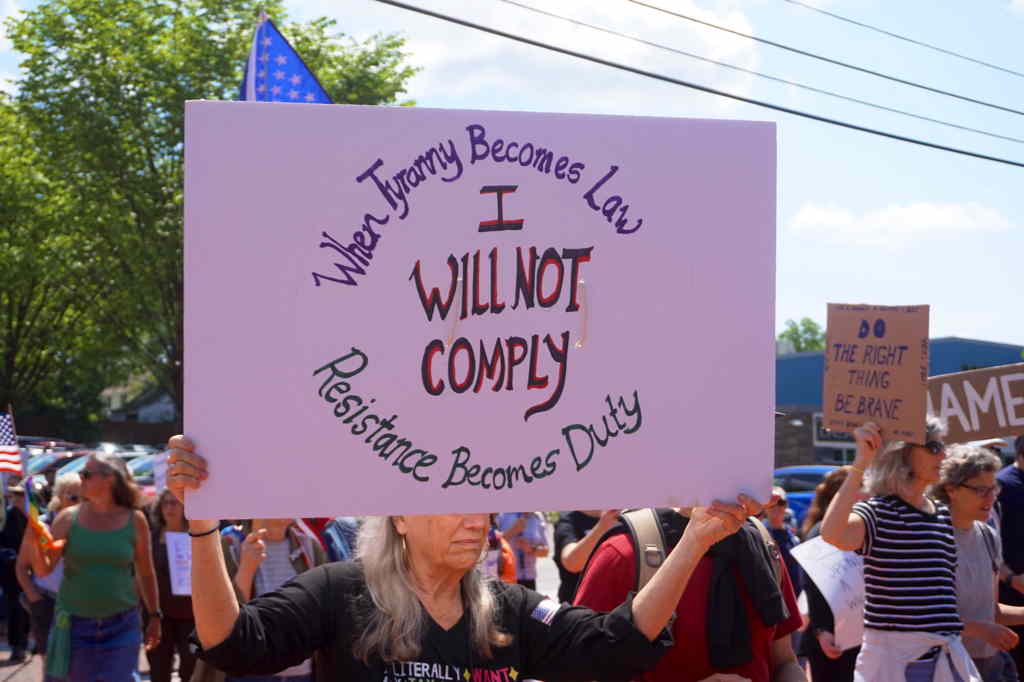 When Tyranny Becomes Law
I
WILL NOT
COMPLY
Resistance Becomes Duty
DO
THE RIGHT
THING
BE BRAVE
AME
LITERALLY WANT